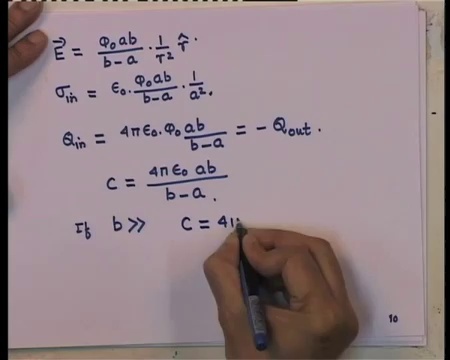 E⃗ = φ₀ab/(b-a) · 1/r² r̂.
σin = ε₀. φ₀ab/(b-a) · 1/a².
Qin = 4πε₀. φ₀ ab/(b-a) = - Qout.
C = 4πε₀ ab/(b-a).
If b>> C = 4π
10